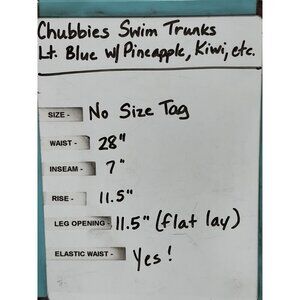 Chubbies Swim Trunks
Lt. Blue w/ Pineapple, Kiwi, etc.
SIZE - No Size Tag
WAIST - 28"
INSEAM - 7"
RISE - 11.5"
LEG OPENING - 11.5" (flat lay)
ELASTIC WAIST - Yes!